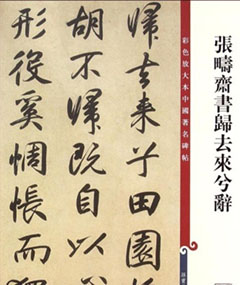 張疇齋書歸去來兮辭
彩色放大本中國著名碑帖
歸去来兮田園
胡不歸既自以
形役奚惆悵而